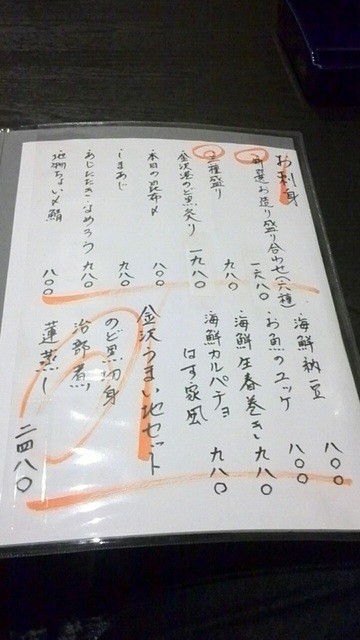 お刺身
特選お造り盛り合わせ(六種) 一六八〇
三種盛り 九八〇
金沢港のど黒炙り 一九八〇
本日の昆布〆 八〇〇
しまあじ 九八〇
あじたたき・なめろう 九八〇
地物ちょい〆鯖 八〇〇
海鮮納豆 八〇〇
お魚のユッケ 八〇〇
海鮮生春巻き 九八〇
海鮮カルパチョ
はす家風 九八〇
金沢うまい地セット
のど黒切身
治部煮
蓮蒸し
二四八〇